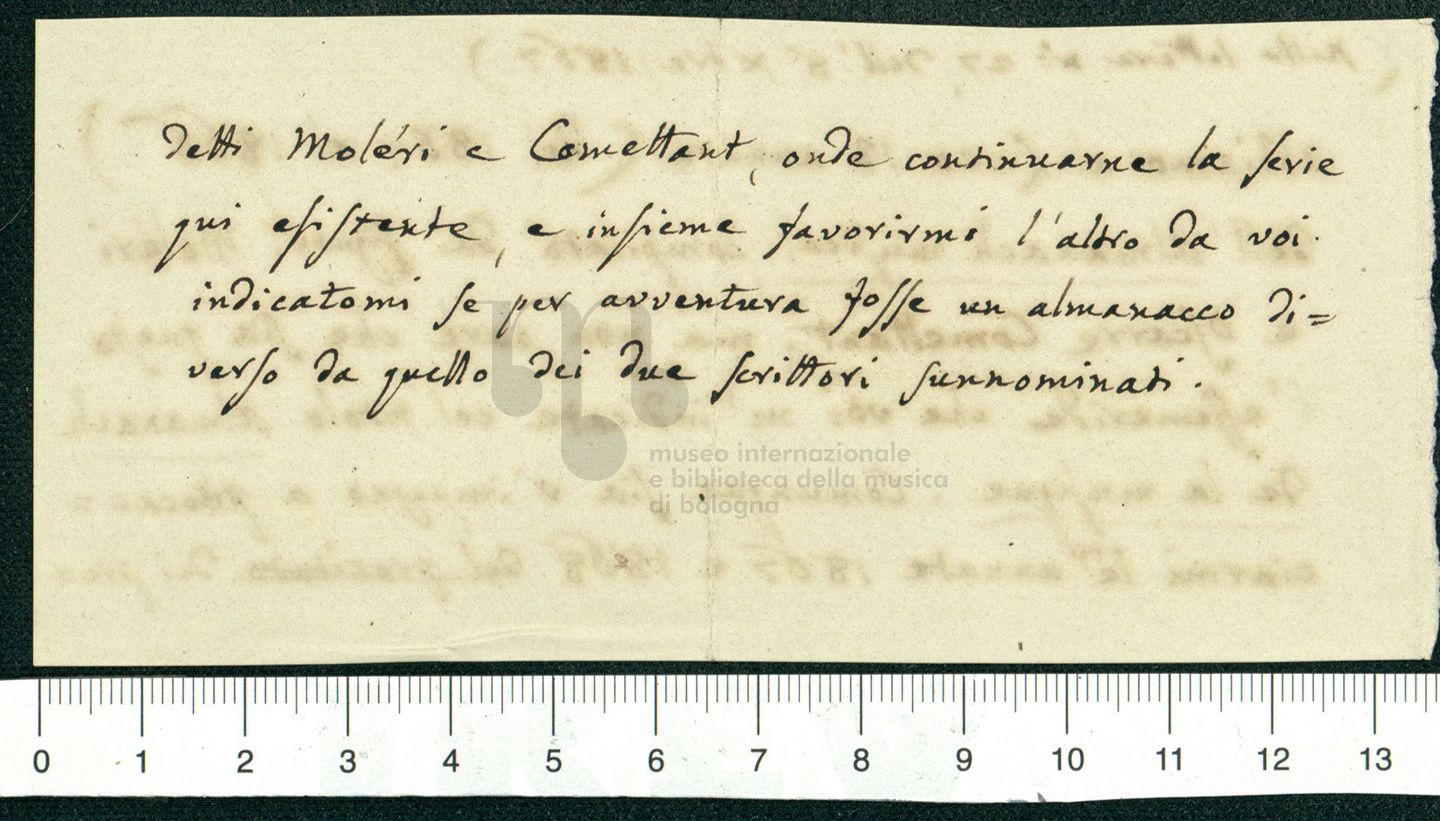 detti Moléri e Comettant, onde continuarne la serie
qui esistente, e insieme favorirmi l'altro da voi
indicatomi se per avventura fosse un almanacco di=
verso da quello dei due scrittori sunnominati.
museo internazionale
e biblioteca della musica
di bologna
0 1 2 3 4 5 6 7 8 9 10 11 12 13